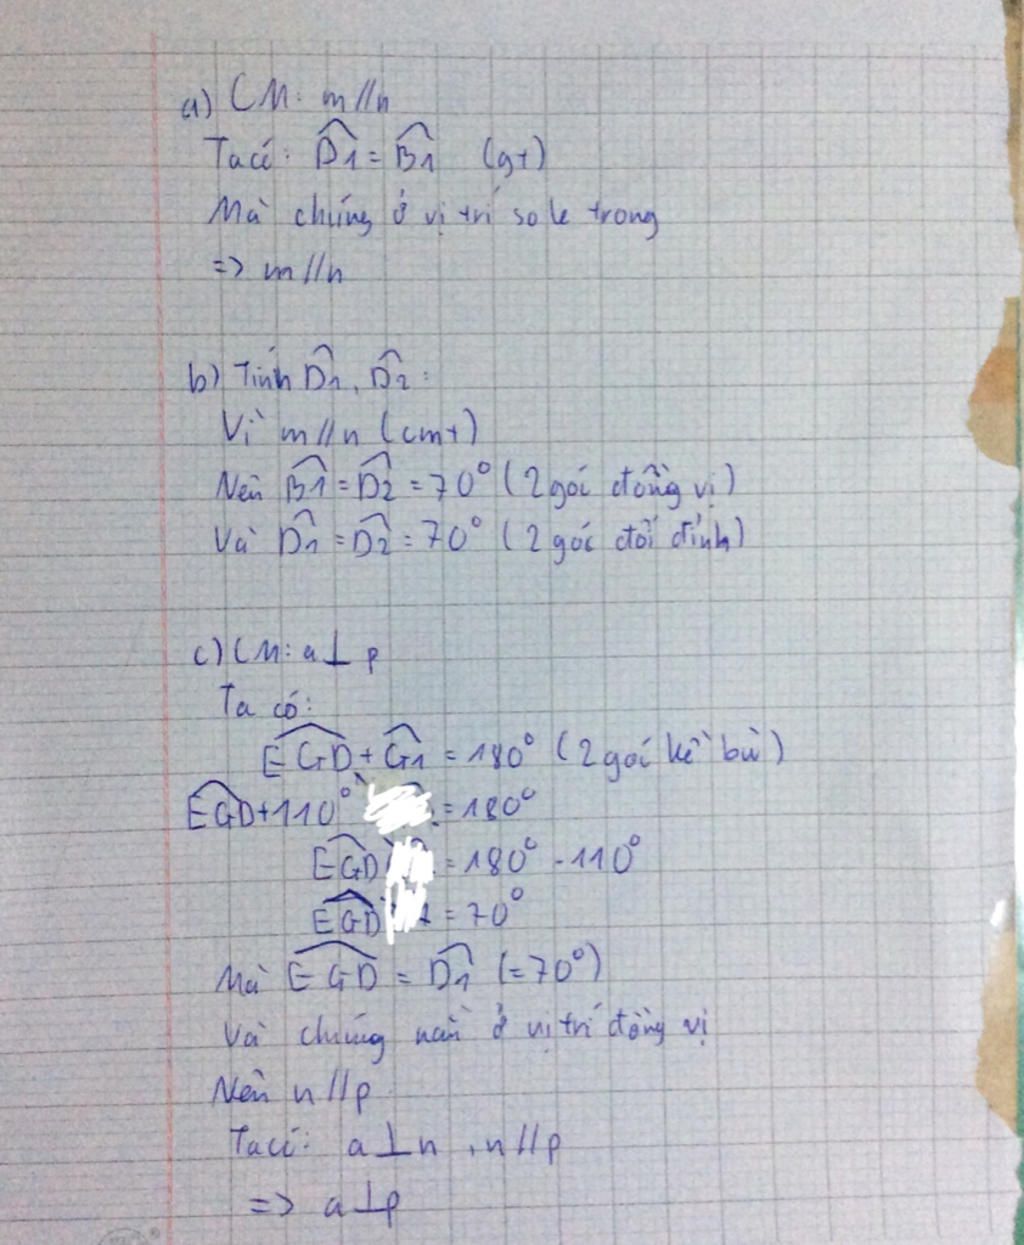 a) CM: m//n
Ta có: D̂1 = B̂1 (gt)
Mà chúng ở vị trí so le trong
=> m//n
b) Tính D̂1, D̂2:
Vì m//n (cmt)
Nên B̂1 = D̂2 = 70° (2 góc đồng vị)
Và D̂1 = D̂2 = 70° (2 góc đối đỉnh)
c) CM: a⊥p
Ta có:
EĜD + Ĝ1 = 180° (2 góc kề bù)
EĜD + 110° = 180°
EĜD = 180° - 110°
EĜD = 70°
Mà EĜD = D̂1 (=70°)
Và chúng nằm ở vị trí đồng vị
Nên n//p
Ta có: a⊥n, n//p
=> a⊥p